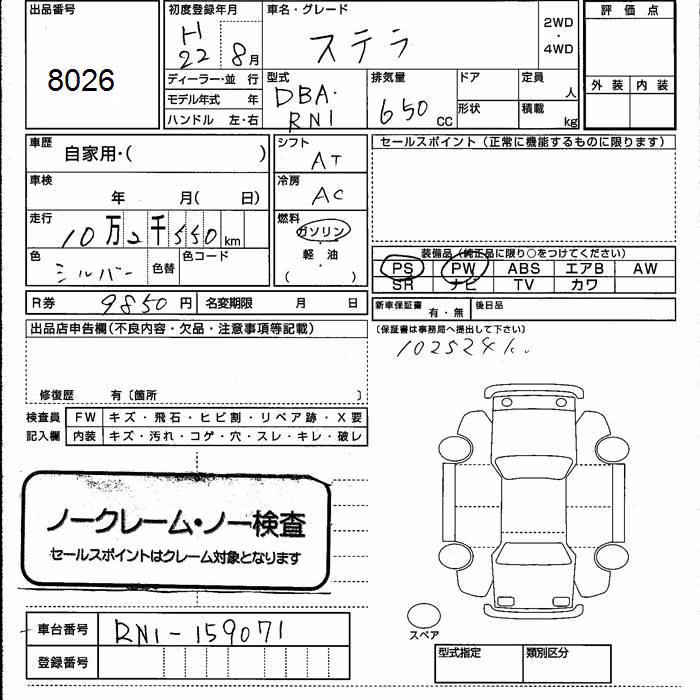 出品番号
8026
初度登録年月
H
22 8月
車名・グレード
ステラ
2WD
・
4WD
評価点
外装 内装
ディーラー・並 行
モデル年式 年
ハンドル 左・右
型式
DBA・
RN1
排気量
650 CC
ドア
形状
定員 人
積載 kg
車歴
自家用・( )
シフト
AT
セールスポイント (正常に機能するものに限ります)
車検
年 月( 日)
冷房
AC
走行
10万2千550 km
燃料
ガソリン
・
軽・油
( )
色
シルバー
色替
色コード
装備品 (純正品に限り○をつけてください)
PS PW ABS エアB AW
SR ナビ TV カワ
R券 9850円 名変期限 月 日
新車保証書
有・無
後日品
(保証書は事務局へ提出して下さい)
102524k
出品店申告欄(不良内容・欠品・注意事項等記載)
修復歴 有〔箇所 〕
検査員 FW キズ・飛石・ヒビ割・リペア跡・X要
記入欄 内装 キズ・汚れ・コゲ・穴・スレ・キレ・破レ
ノークレーム・ノー検査
セールスポイントはクレーム対象となります
車台番号 RN1-159071
登録番号
スペア
型式指定 類別区分